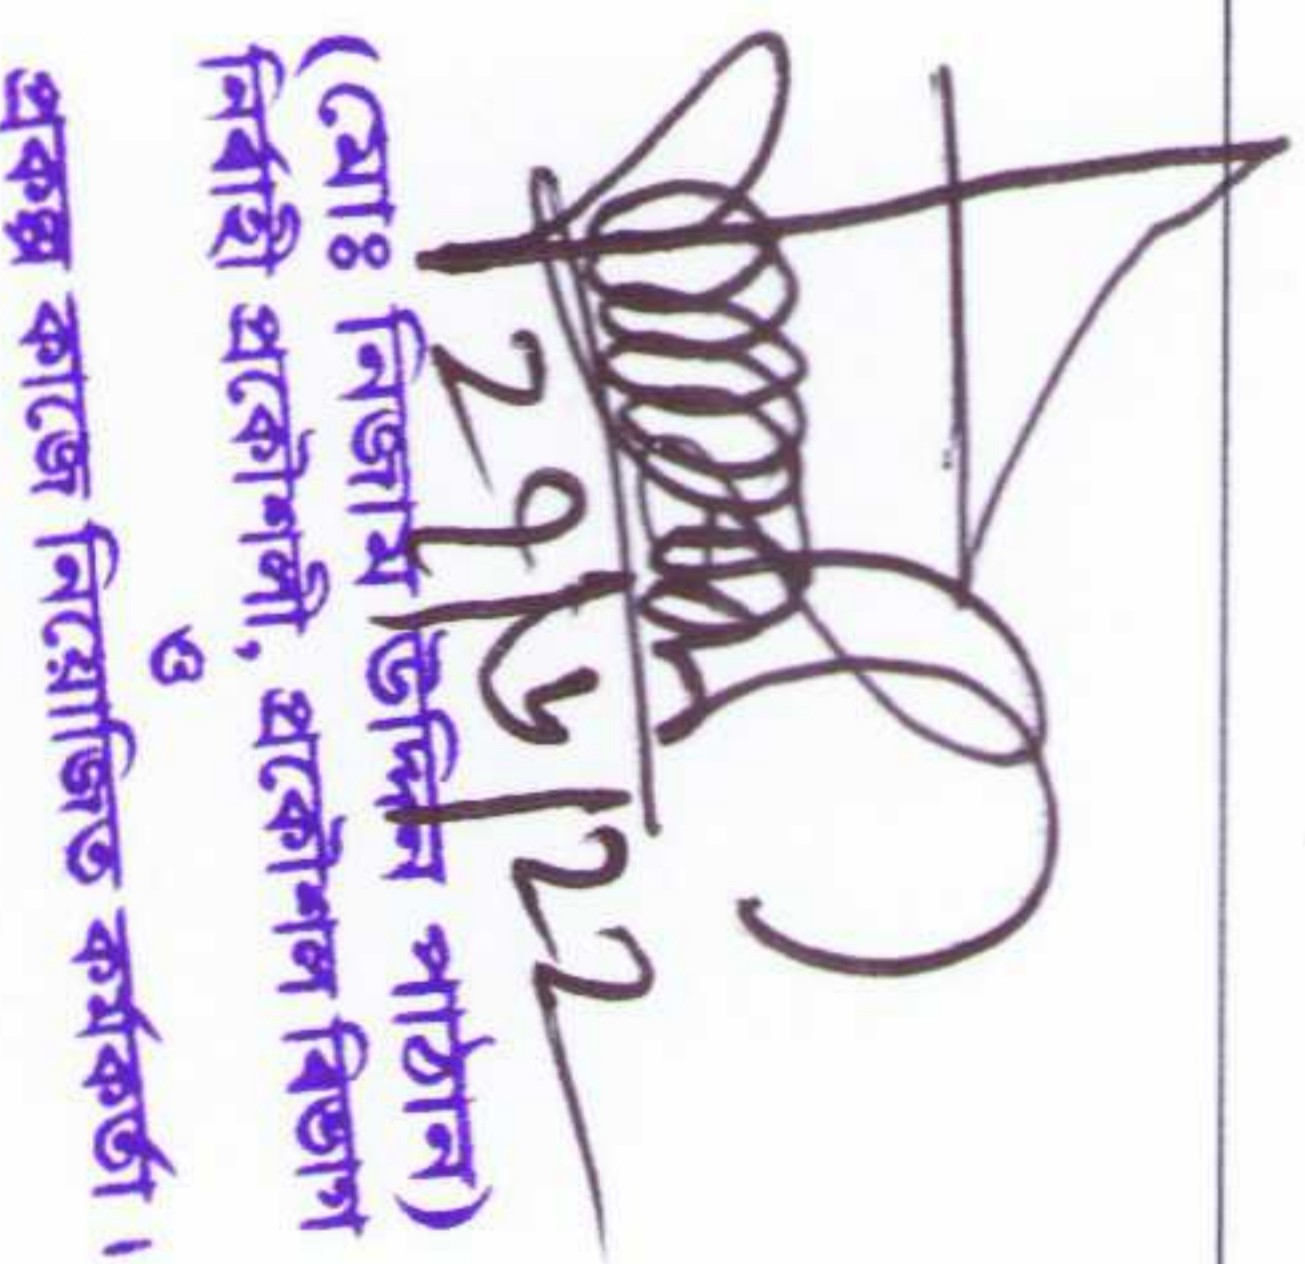 ২৭/৬/২২
(মোঃ নিজাম উদ্দিন পাঠান)
নির্বাহী প্রকৌশলী, প্রকৌশল বিভাগ
ও
প্রকল্প কাজে নিয়োজিত কর্মকর্তা।